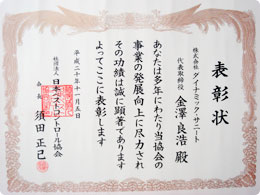 表彰状
株式会社 ダイナミック・サニート
代表取締役 金澤良浩 殿
あなたは多年にわたり当協会の
事業の発展向上に尽力され
その功績は誠に顕著であります
よってここに表彰します
平成二十年十一月五日
社団法人
日本ペストコントロール協会
会長 須田正己